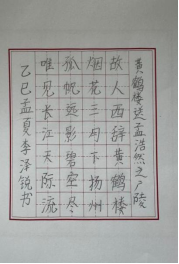 黄鹤楼送孟浩然之广陵
故人西辞黄鹤楼
烟花三月下扬州
孤帆远影碧空尽
唯见长江天际流
乙巳孟夏李泽锐书